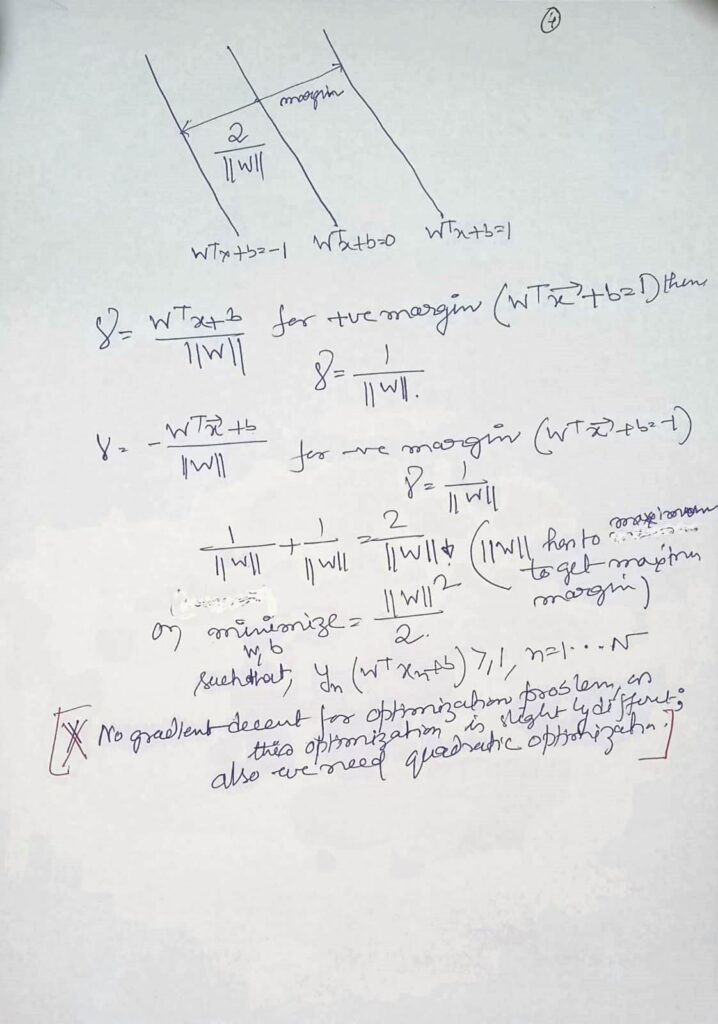 ④
margin
2
‖W‖
Wᵀx+b=-1 Wᵀx+b=0 Wᵀx+b=1
γ = (Wᵀx+b)/‖W‖ for +ve margin (Wᵀx⃗+b=1) then
γ = 1/‖W‖.
γ = -(Wᵀx⃗+b)/‖W‖ for -ve margin (Wᵀx⃗+b=-1)
γ = 1/‖W‖
1/‖W‖ + 1/‖W‖ = 2/‖W‖ (‖W‖ has to
to get maximu
margin)
minimize = ‖W‖²/2.
w, b
such that, yₙ (wᵀxₙ+b) ≥ 1, n=1...N
[* No gradient decent for optimization problem, as
this optimization is slightly different;
also we need quadratic optimization.]